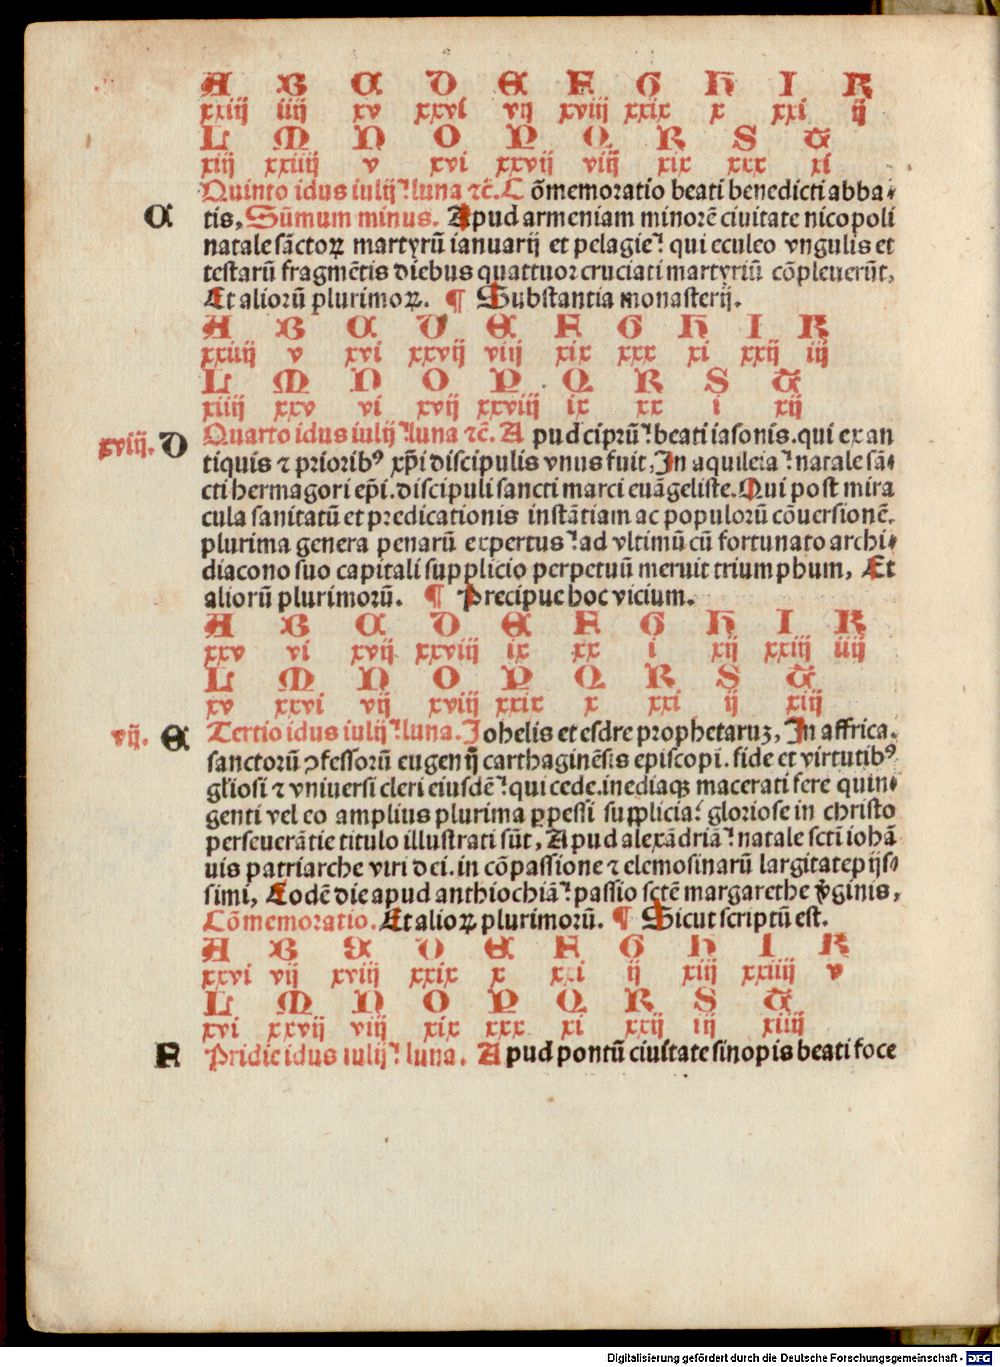 A B C D E F G H I K
xxiij iiij xv xxvi vij xviij xxix x xxi ij
L M N O P Q R S T
xij xxiiij v xvi xxvij viij xix xxx xi
Quinto idus iulij. luna ⁊c̃. Cõmemoratio beati benedicti abba⸗
C tis, Sũmum minus. Apud armeniam minorẽ ciuitate nicopoli
natale sãctoꝝ martyrũ ianuarij et pelagie. qui eculeo vngulis et
testarũ fragmẽtis diebus quattuor cruciati martyriũ cõpleuerũt,
Et aliorũ plurimoꝝ. ¶ Substantia monasterij.
A B C D E F G H I K
xxiiij v xvi xxvij viij xix xxx xi xxij iij
L M N O P Q R S T
xiiij xxv vi xvij xxviij ix xx i xij
xviij. D Quarto idus iulij. luna ⁊c̃. Apud ciprũ. beati iasonis. qui ex an
tiquis ⁊ prioribꝰ xp̃i discipulis vnus fuit, In aquileia. natale sã⸗
cti hermagori ep̃i. discipuli sancti marci euãgeliste. Qui post mira
cula sanitatũ et predicationis instãtiam ac populorũ cõuersionẽ.
plurima genera penarũ expertus. ad vltimũ cũ fortunato archi⸗
diacono suo capitali supplicio perpetuũ meruit triumphum, Et
aliorũ plurimorũ. ¶ Precipue hoc vicium.
A B C D E F G H I K
xxv vi xvij xxviij ix xx i xij xxiij iiij
L M N O P Q R S T
xv xxvi vij xviij xxix x xxi ij xiij
vij. E Tertio idus iulij. luna. Johelis et esdre prophetaruꝫ, In affrica.
sanctorũ ꝯfessorũ eugenij carthaginẽsis episcopi. fide et virtutibꝰ
gl̃iosi ⁊ vniuersi cleri eiusdẽ. qui cede. inediaqꝫ macerati fere quin⸗
genti vel eo amplius plurima ꝑpessi supplicia. gloriose in christo
perseuerãtie titulo illustrati sũt, Apud alexãdriã. natale scti iohã
nis patriarche viri dei. in cõpassione ⁊ elemosinarũ largitate pijs⸗
simi, Eodẽ die apud anthiochiã. passio sctẽ margarethe v̾ginis,
Cõmemoratio. Et alioꝝ plurimorũ. ¶ Sicut scriptũ est.
A B C D E F G H I K
xxvi vij xviij xxix x xxi ij xiij xxiiij v
L M N O P Q R S T
xvi xxvij viij xix xxx xi xxij iij xiiij
F Pridie idus iulij. luna. Apud pontũ ciuitate sinopis beati foce
Digitalisierung gefördert durch die Deutsche Forschungsgemeinschaft - DFG